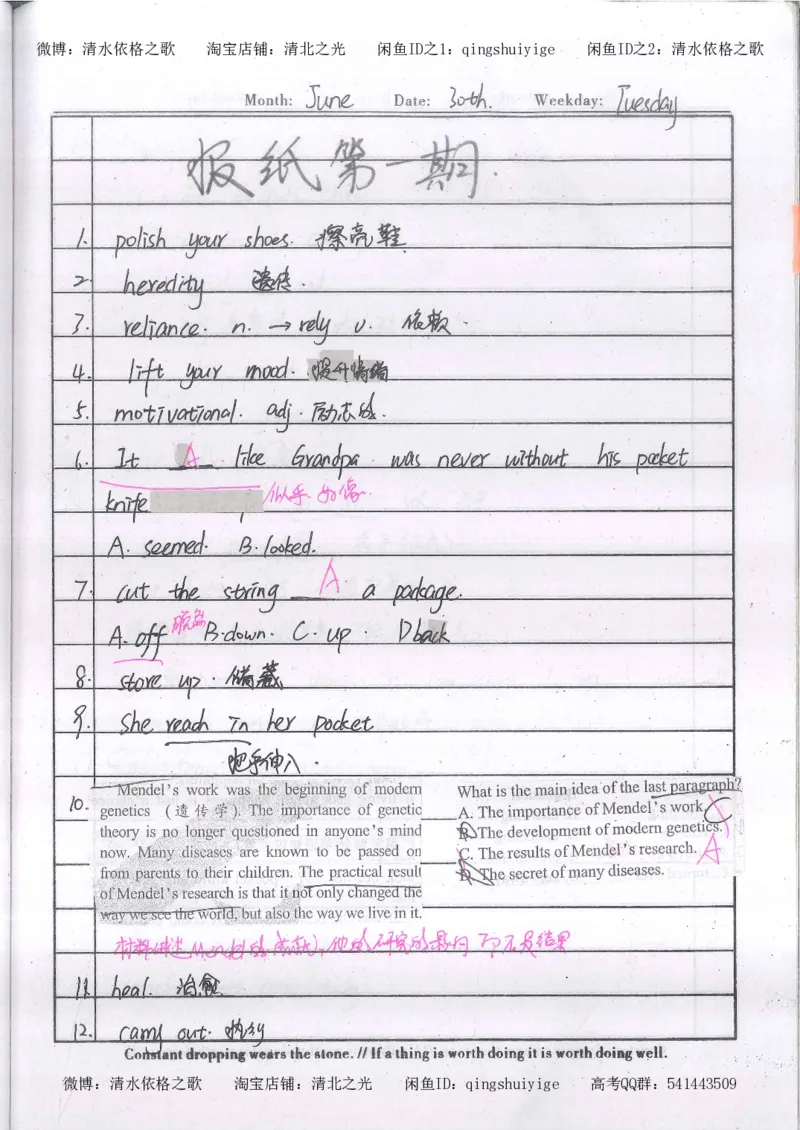 微博：清水依格之歌 淘宝店铺：清北之光 闲鱼ID之1：qingshuiyige 闲鱼ID之2：清水依格之歌
Month: June Date: 30th. Weekday: Tuesday
报纸第一期.
1. polish your shoes. 擦亮鞋
2 heredity 遗传.
3. reliance. n. → rely v. 依赖.
4. lift your mood. 提升情绪
5. motivational. adj. 励志的.
6. It A like Grandpa was never without his pocket
knife 似乎 好像.
A. seemed. B. looked.
7. cut the string A. a package.
A. off B. down. C. up D back
8. store up. 储藏
9. She reach in her pocket
把手伸入.
10. Mendel's work was the beginning of modern
genetics （遗传学）. The importance of genetic
theory is no longer questioned in anyone's mind
now. Many diseases are known to be passed on
from parents to their children. The practical result
of Mendel's research is that it not only changed the
way we see the world, but also the way we live in it.
What is the main idea of the last paragraph?
A. The importance of Mendel's work. C
B. The development of modern genetics.
C. The results of Mendel's research. A
D. The secret of many diseases.
材料讲述Mendel的贡献,他的研究的影响 而不是结果
11. heal. 治愈
12. carry out. 执行
Constant dropping wears the stone. // If a thing is worth doing it is worth doing well.
微博：清水依格之歌 淘宝店铺：清北之光 闲鱼ID：qingshuiyige 高考QQ群：541443509